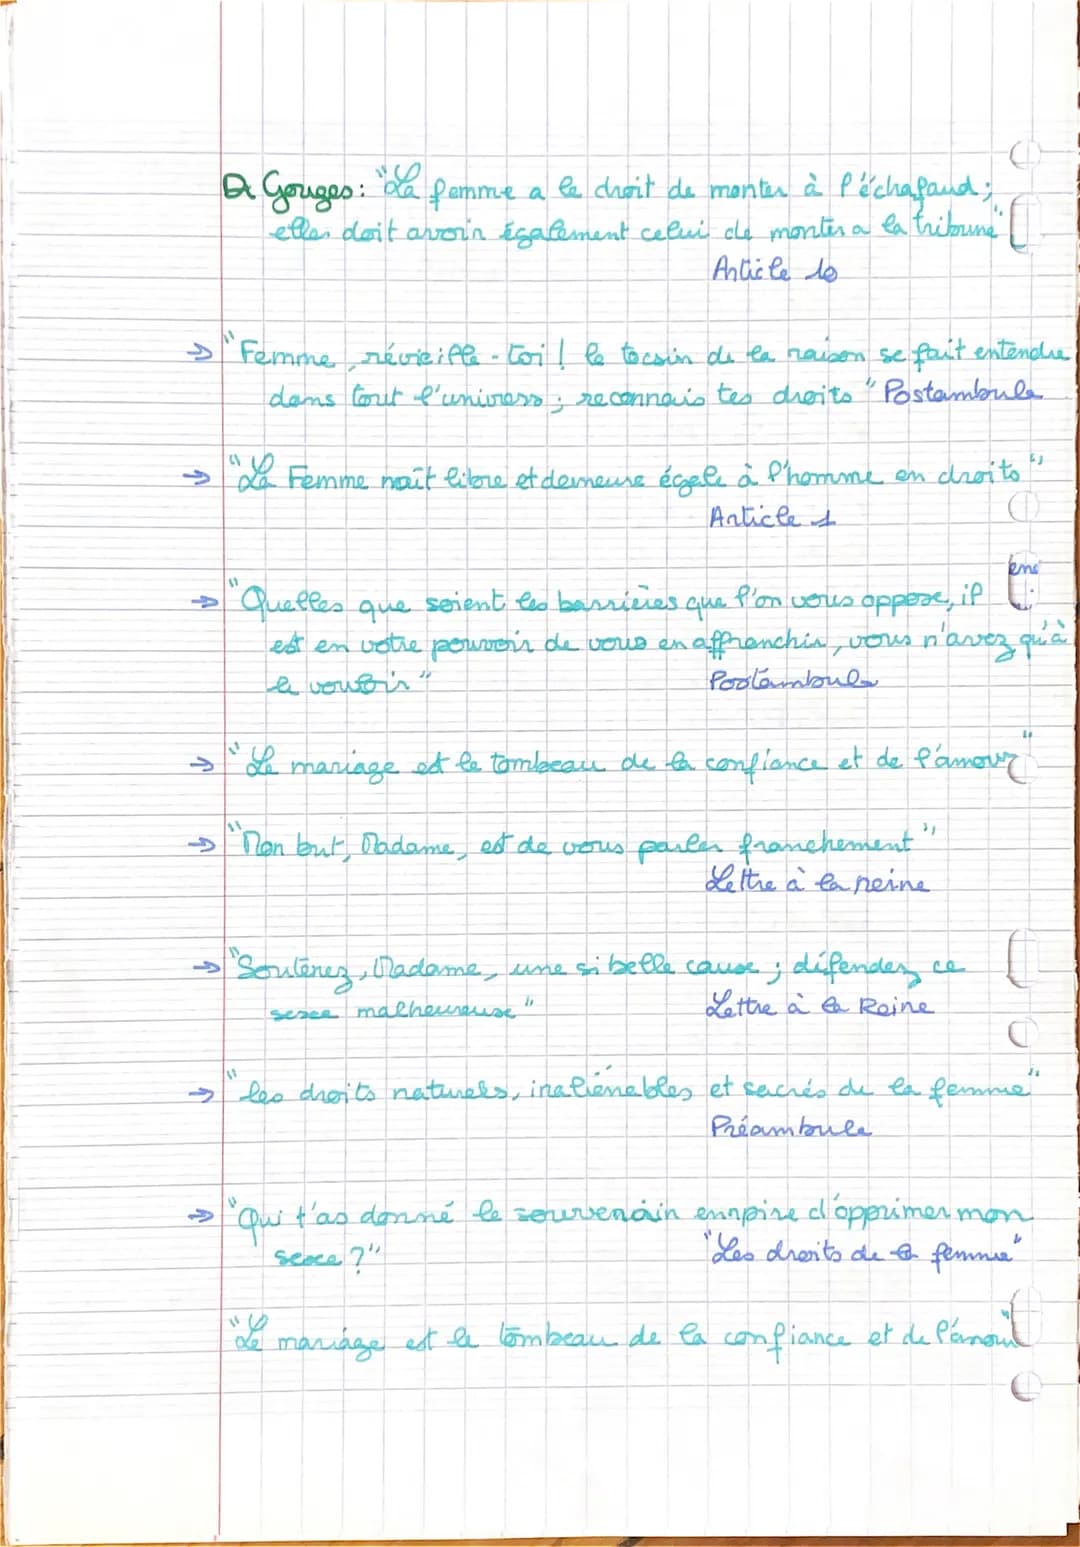 De Gouges: "La femme a le droit de monter à l'échafaud;
elle doit avoir également celui de monter a la tribune"
Article 10
→ "Femme, réveille-toi! le tocsin de la raison se fait entendre
dans tout l'univers; reconnais tes droits" Postambule
→ "La Femme naît libre et demeure égale à l'homme en droits"
Article 1
→ "Quelles que soient les barrières que l'on vous oppose, il
est en votre pouvoir de vous en affranchir, vous n'avez qu'à
le vouloir" Postambule
→ "Le mariage est le tombeau de la confiance et de l'amour"
→ "Mon but, Madame, est de vous parler franchement"
Lettre à la reine
→ "Soutenez, Madame, une si belle cause; défendez ce
sexe malheureuse" Lettre à la Reine
→ "les droits naturels, inaliénables et sacrés de la femme"
Préambule
→ "Qui t'as donné le souverain empire d'opprimer mon
sexe?" "Les droits de la femme"
"Le mariage est le tombeau de la confiance et de l'amour"